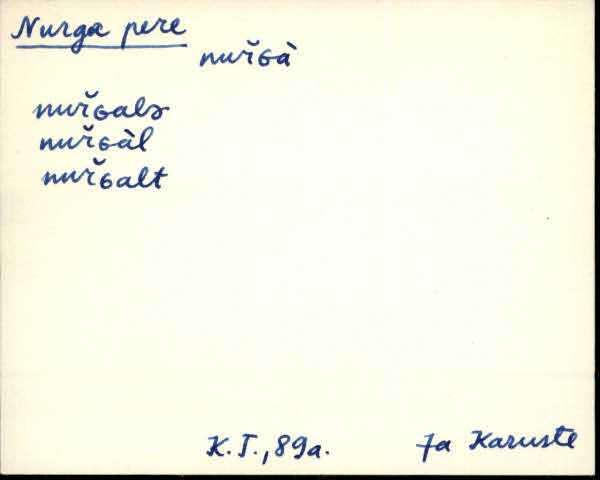 Nurga pere
nur̆ɢà
nur̆ɢalə
nur̆ɢàl
nur̆ɢalt
K.T., 89a. Ja Karuste